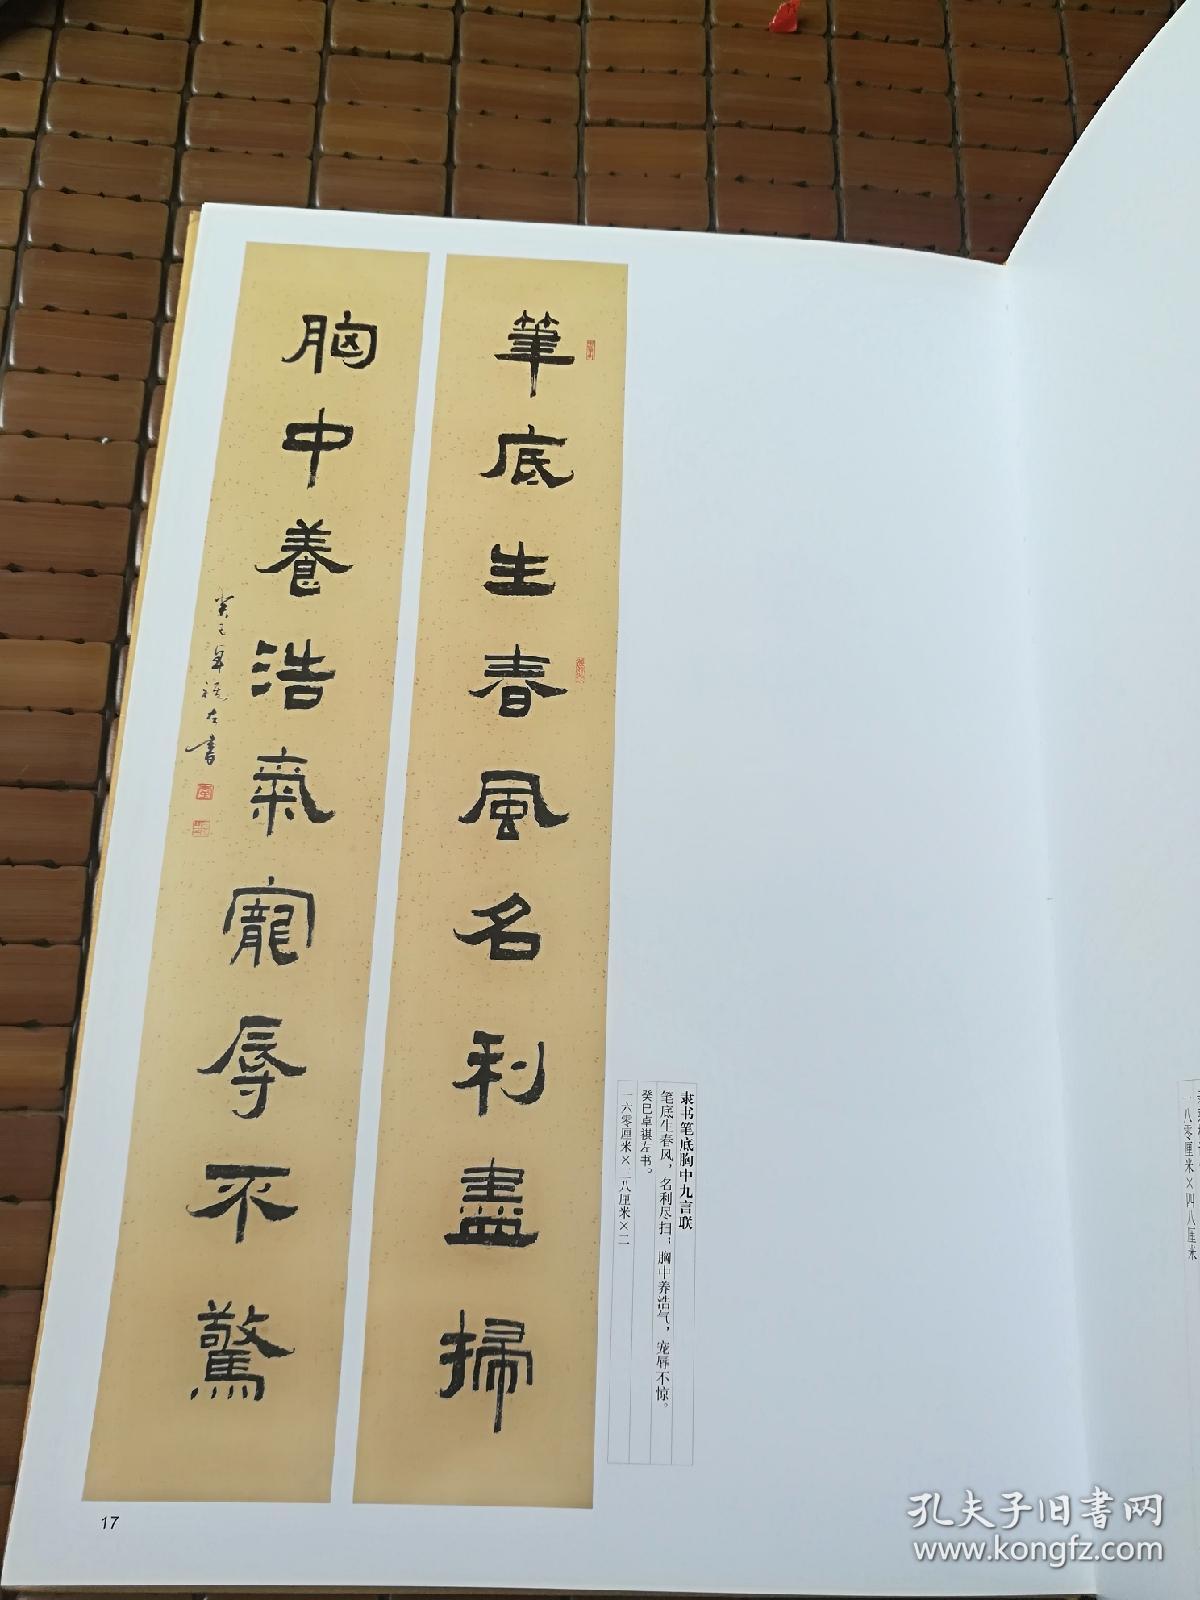 筆底生春風名利盡掃
胸中養浩氣寵辱不驚
癸巳卓祺左書
隶书笔底胸中九言联
笔底生春风，名利尽扫；胸中养浩气，宠辱不惊。
癸巳卓祺左书。
一六零厘米×二八厘米×二
八零厘米×四八厘米
17
孔夫子旧书网
www.kongfz.com